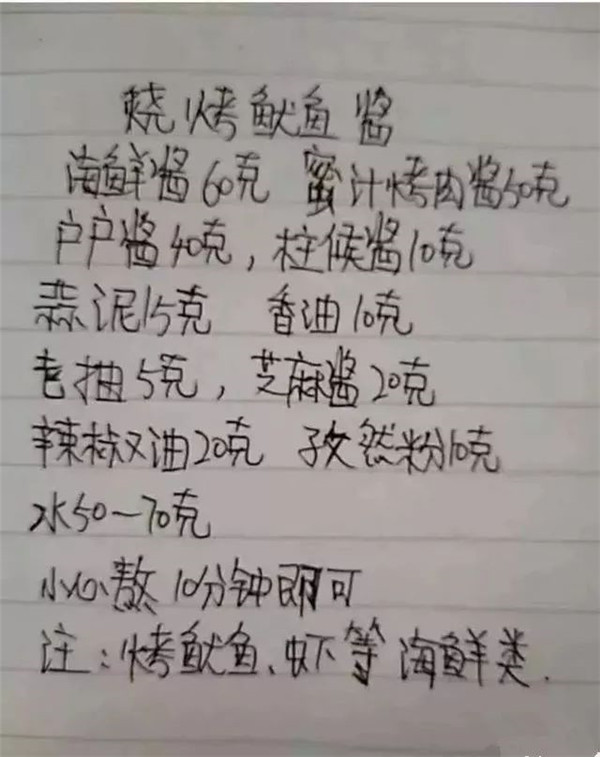 烧烤鱿鱼酱
海鲜酱60克 蜜汁烤肉酱50克
户户酱40克，柱候酱10克
蒜泥15克 香油10克
老抽5克，芝麻酱20克
辣椒油20克 孜然粉10克
水50一70克
小心熬10分钟即可
注：烤鱿鱼、虾等海鲜类.